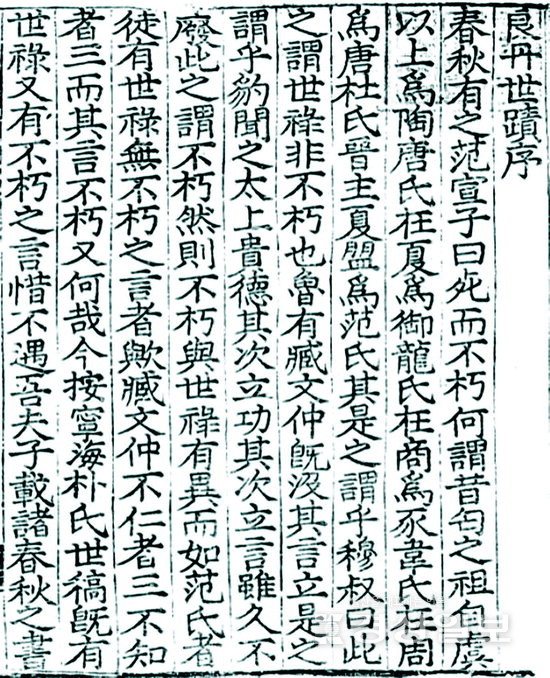 良丹世蹟序
春秋有之范宣子曰死而不朽何謂昔匄之祖自虞
以上爲陶唐氏在夏爲御龍氏在商爲豕韋氏在周
爲唐杜氏晉主夏盟爲范氏其是之謂乎穆叔曰此
之謂世祿非不朽也魯有臧文仲旣沒其言立是之
謂乎豹聞之太上貴德其次立功其次立言雖久不
廢此之謂不朽然則不朽與世祿有異而如范氏者
徒有世祿無不朽之言者歟臧文仲不仁者三不知
者三而其言不朽又何哉今按寧海朴氏世稿旣有
世祿又有不朽之言惜不遇吾夫子載諸春秋之書